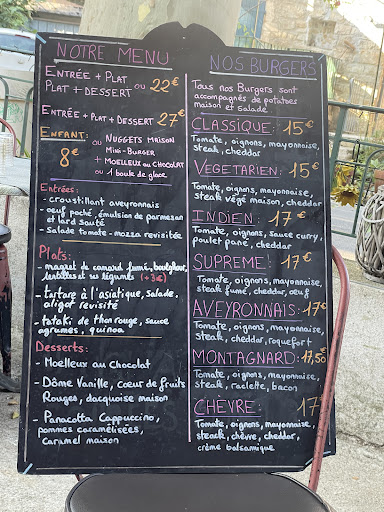 NOTRE MENU
ENTRÉE + PLAT
PLAT + DESSERT ou 22€
ENTRÉE + PLAT + DESSERT 27€
ENFANT: NUGGETS MAISON
ou MINI-BURGER
8€ + MOELLEUX AU CHOCOLAT
ou 1 boule de glace
Entrées:
- croustillant aveyronnais
- oeuf poché, émulsion de parmesan
et lard sauté
- salade tomate - mozza revisitée
Plats:
- magret de canard fumé, boulghour,
lentilles et ses légumes (+3€)
- tartare à l'asiatique, salade,
aligot revisité
- tataki de thon rouge, sauce
agrumes, quinoa
Desserts:
- Moelleux au Chocolat
- Dôme Vanille, coeur de fruits
Rouges, dacquoise maison
- Panacotta Cappuccino,
pommes caramélisées,
Caramel maison
NOS BURGERS
Tous nos Burgers sont
accompagnés de potatoes
maison et salade
CLASSIQUE: 15€
Tomate, oignons, mayonnaise,
steak, cheddar
VEGETARIEN: 15€
Tomate, oignons, mayonnaise,
steak végé maison, cheddar
INDIEN: 17€
Tomate, oignons, sauce curry,
poulet pané, cheddar
SUPREME: 17€
Tomate, oignons, mayonnaise,
steak fumé, cheddar, oeuf
AVEYRONNAIS: 17€
Tomate, oignons, mayonnaise,
Steak, cheddar, roquefort
MONTAGNARD: 17,50€
Tomate, oignons, mayonnaise,
steak, raclette, bacon
CHEVRE: 17€
Tomate, oignons, mayonnaise,
steak, chèvre, cheddar,
crème balsamique